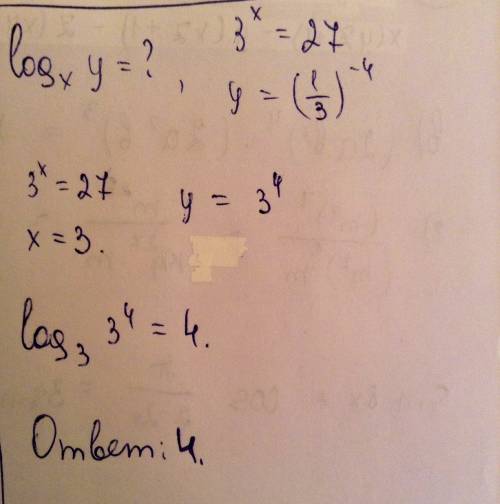 log_x y = ?, 3^x = 27
y = (1/3)^{-4}
3^x = 27 y = 3^4
x = 3.
log_3 3^4 = 4.
Ответ: 4.